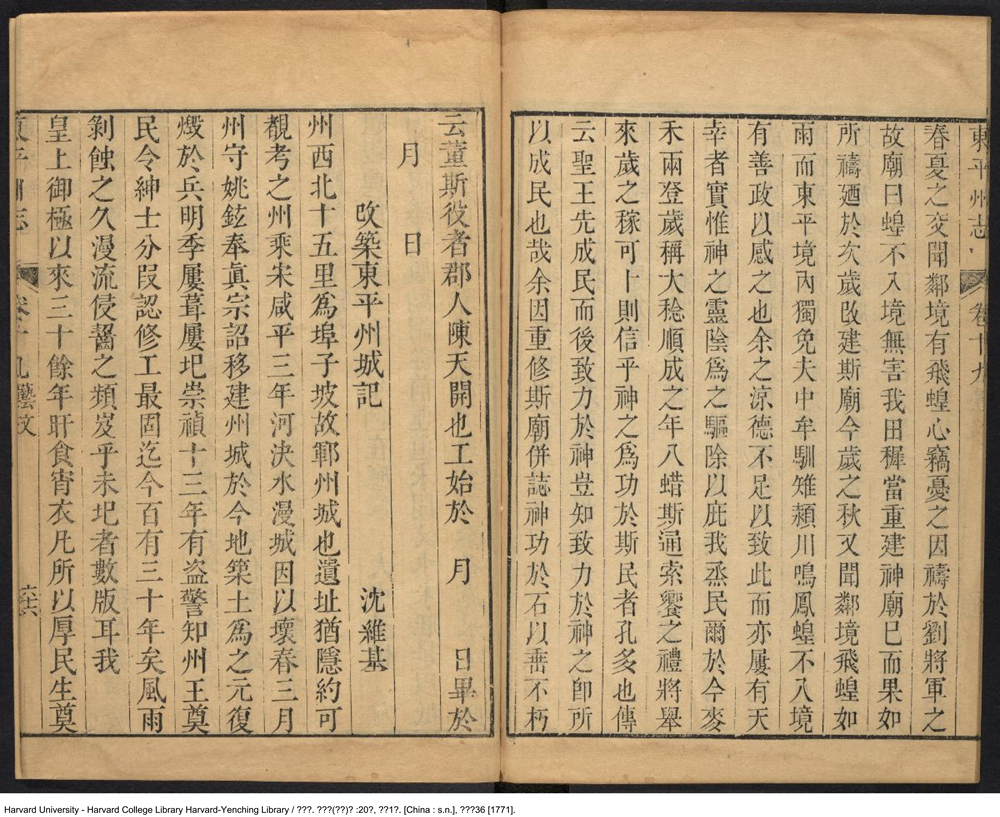 東平州志
卷十九
春夏之交聞鄰境有飛蝗心竊憂之因禱於劉將軍之
故廟曰蝗不入境無害我田穉當重建神廟已而果如
所禱廼於次歲改建斯廟今歲之秋又聞鄰境飛蝗如
雨而東平境內獨免夫中牟馴雉潁川鳴鳳蝗不入境
有善政以感之也余之凉德不足以致此而亦屢有天
幸者實惟神之靈陰爲之驅除以庇我烝民爾於今麥
禾兩登歲稱大稔順成之年八蜡斯通索饗之禮將舉
來歲之稼可卜則信乎神之爲功於斯民者孔多也傳
云聖王先成民而後致力於神豈知致力於神之卽所
以成民也哉余因重修斯廟併誌神功於石以垂不朽
云董斯役者郡人陳天開也工始於 月 日畢於
月 日
改築東平州城記 沈維基
州西北十五里爲埠子坡故鄆州城也遺址猶隱約可
覩考之州乘宋咸平三年河決水漫城因以壞春三月
州守姚鉉奉眞宗詔移建州城於今地築土爲之元復
燬於兵明季屢葺屢圮崇禎十三年有盗警知州王奠
民令紳士分段認修工最固迄今百有三十年矣風雨
剝蝕之久漫流侵齧之頻岌乎未圮者數版耳我
皇上御極以來三十餘年旰食宵衣凡所以厚民生奠
東平州志
卷十九藝文
六六
Harvard University - Harvard College Library Harvard-Yenching Library / ???. ???(??)? :20?, ??1?. [China : s.n.], ???36 [1771].